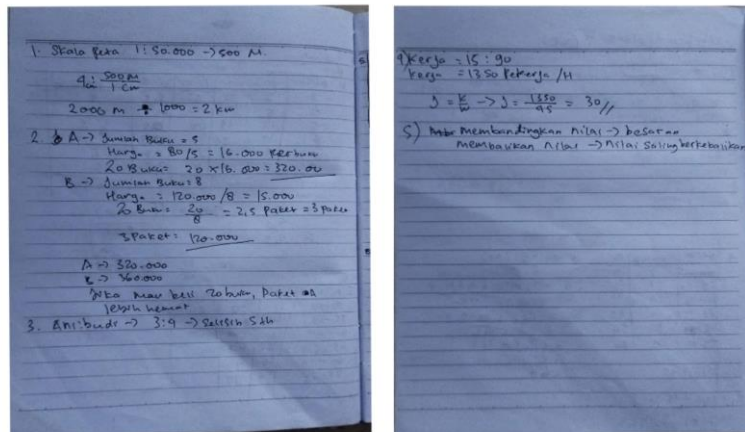 1. Skala Peta 1:50.000 → 500 M.
500 M
1 cm
2000 m ÷ 1000 = 2 km
2. A → Jumlah Buku = 5
Harga = 80/5 = 16.000 Perbuku
20 Buku = 20 x 16.000 = 320.00
B → Jumlah Buku = 8
Harga = 120.000/8 = 15.000
20 Buku = 20/8 = 2,5 Paket = 3 Paket
3 Paket = 120.000
A → 320.000
B → 360.000
Jika mau beli 20 buku, Paket A
lebih hemat
3. Ani:budi → 3:4 → selisih 5th
4) Kerja = 15 : 90
kerja = 1350 Pekerja /H
J = K/W → J = 1350/45 = 30 //
5) Membandingkan nilai → besaran
membalikan nilai → nilai saling berkebalikan